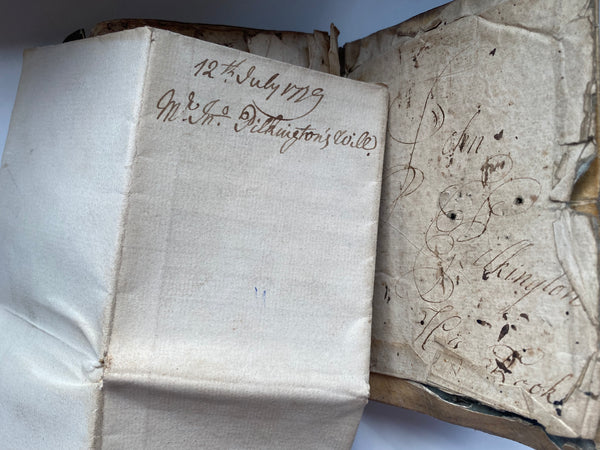 12th July 1779
Mr Jno Pilkington's Will
John
Pilkington
His Book